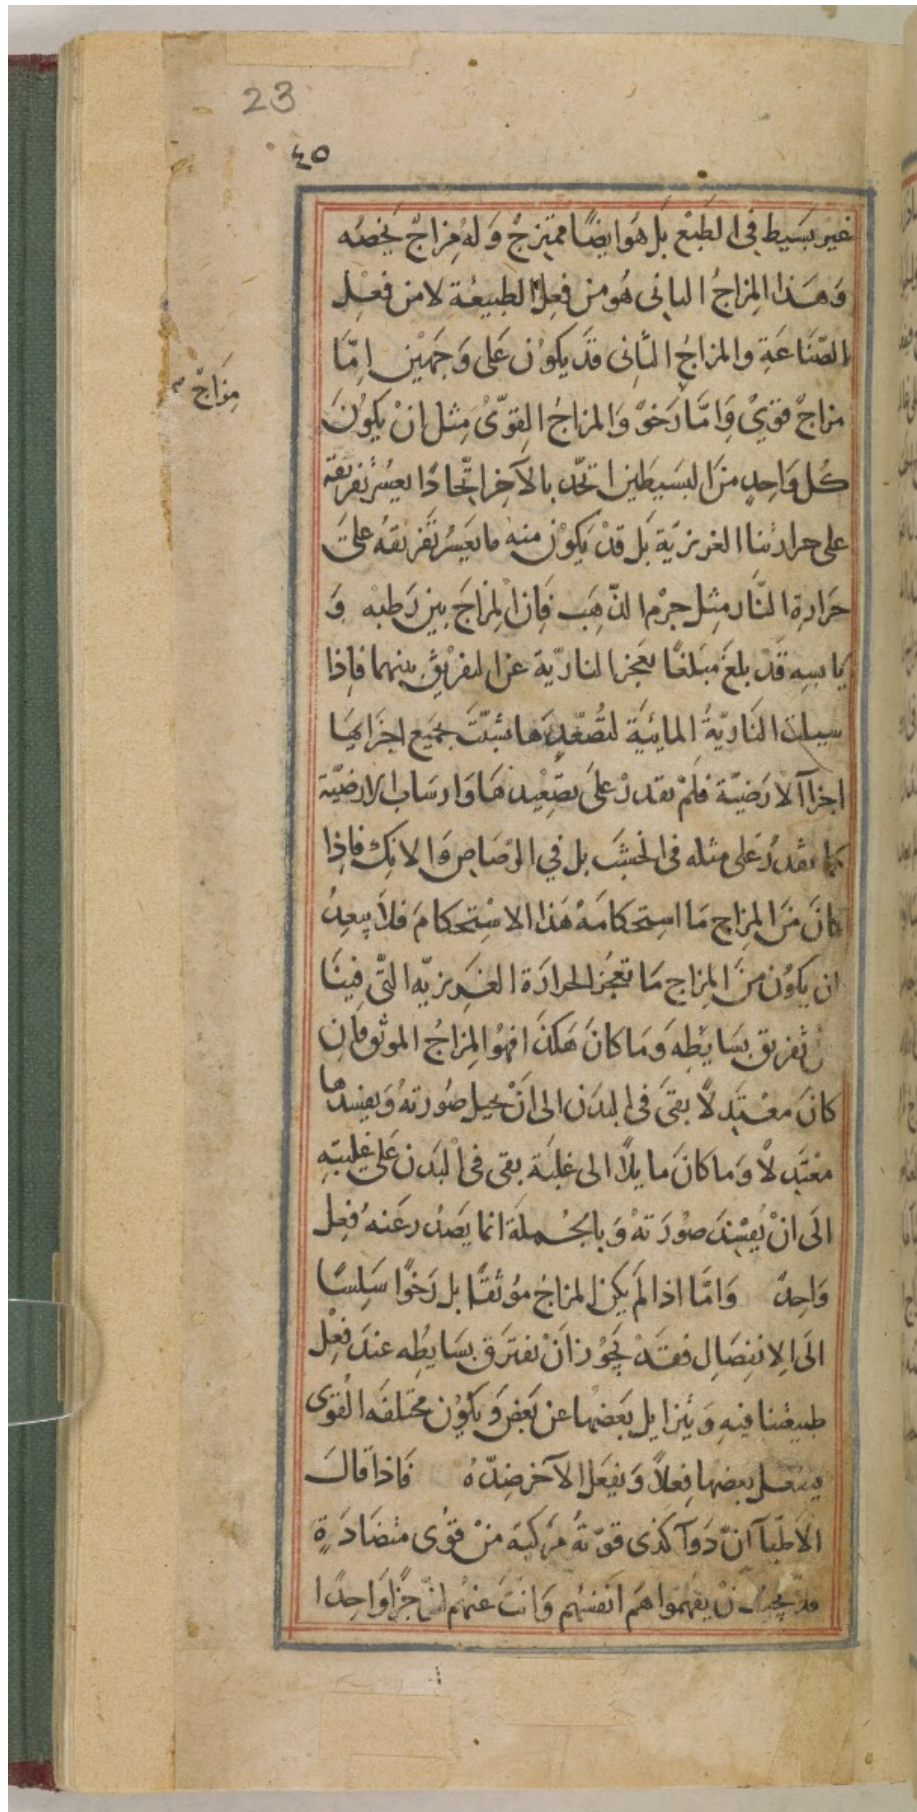 23
٤٥
غير بسيط في الطبع بل هو ايضًا ممتزج وله مزاج يخصه
وهذا المزاج الثانى هو من فعل الطبيعة لا من فعل
الصناعة والمزاج الثانى قد يكون على وجهين امّا
مزاج ؎
مزاج قويّ وامّا رخو والمزاج القويّ مثل ان يكون
كل واحدٍ من البسيطين اتحد بالآخر اتّحادًا يعسر تفريقه
على حرارتنا الغريزية بل قد يكون منه ما يعسر تفريقه على
حرارة النار مثل جرم الذهب فان المزاج بين رطبه و
يابسه قد بلغ مبلغًا يعجز النارية عن التفريق بينهما فاذا
سيلت النارية المائية لتصعّدها تشبّثت بجميع اجزايها
اجزآ الارضيّة فلم تقدر على تصعيدها وارساب الارضيّة
كما تقدر على مثله فى الخشب بل في الرصاص والانك فاذا
كان من المزاج ما استحكامه هذا الاستحكام فلا يبعد
ان يكون من المزاج ما تعجز الحرارة الغريزيّه التّى فينا
عن تفريق بسايطه وما كان هكذا فهو المزاج الموثق فان
كان معتدلًا بقى فى البدن الى ان يحيل صورته ويفسدها
معتدلًا وما كان مايلًا الى غلبة بقى فى البدن على غلبته
الى ان يُفسد صورته وبالجملة انما يصدر عنه فعل
واحدٌ وامّا اذا لم يكن المزاج موثقًا بل رخوًا سلسًا
الى الانفصال فقد يجوز ان تفترق بسايطه عند فعل
طبيعتنا فيه ويتزايل بعضها عن بعض ويكون مختلفه القوى
فيفعل بعضها فعلًا ويفعل الآخر ضدّه فاذا قال
الاطبّآ انّ دوآ كذى قوّته مركبة من قوى متضادةٍ
فلا يجب ان يفهموا هم انفسهم وانت عنهم انّ جزًا واحدًا